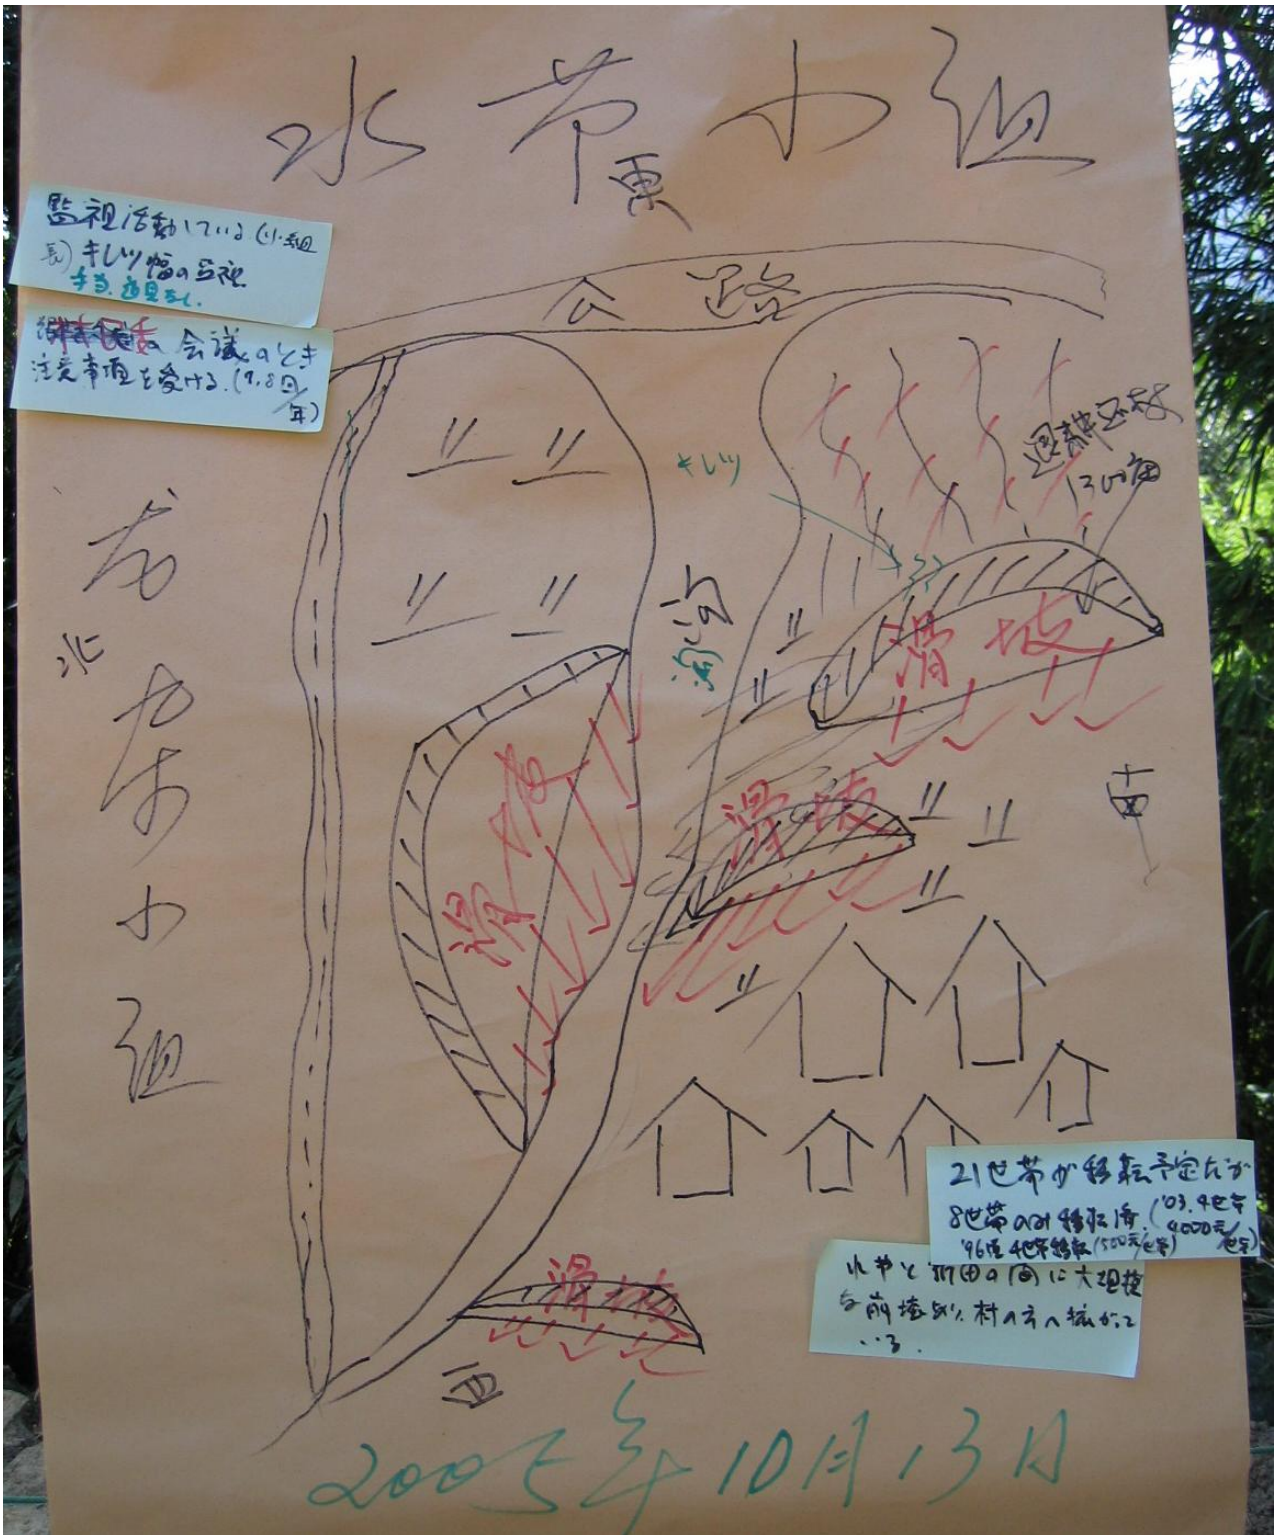 水节小组
東
監視活動している(小組
長)キレツ幅の監視
手当、道具なし。
会議のとき
注意事項を受ける。(7.8回/年)
公路
キレツ
退耕还林
1300亩
北
小组
沟
滑坡
滑坡
滑坡
南
21世帯が移転予定だが
8世帯のみ移転済。('03.4世帯
4000元/世帯)
'96に4世帯移転(500元/世帯)
水节と新田の間に大規模
な崩壊あり。村の方へ拡がって
いる.
滑坡
西
2005年10月13日